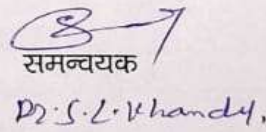 समन्वयक
Dr. S. L. Khandy.